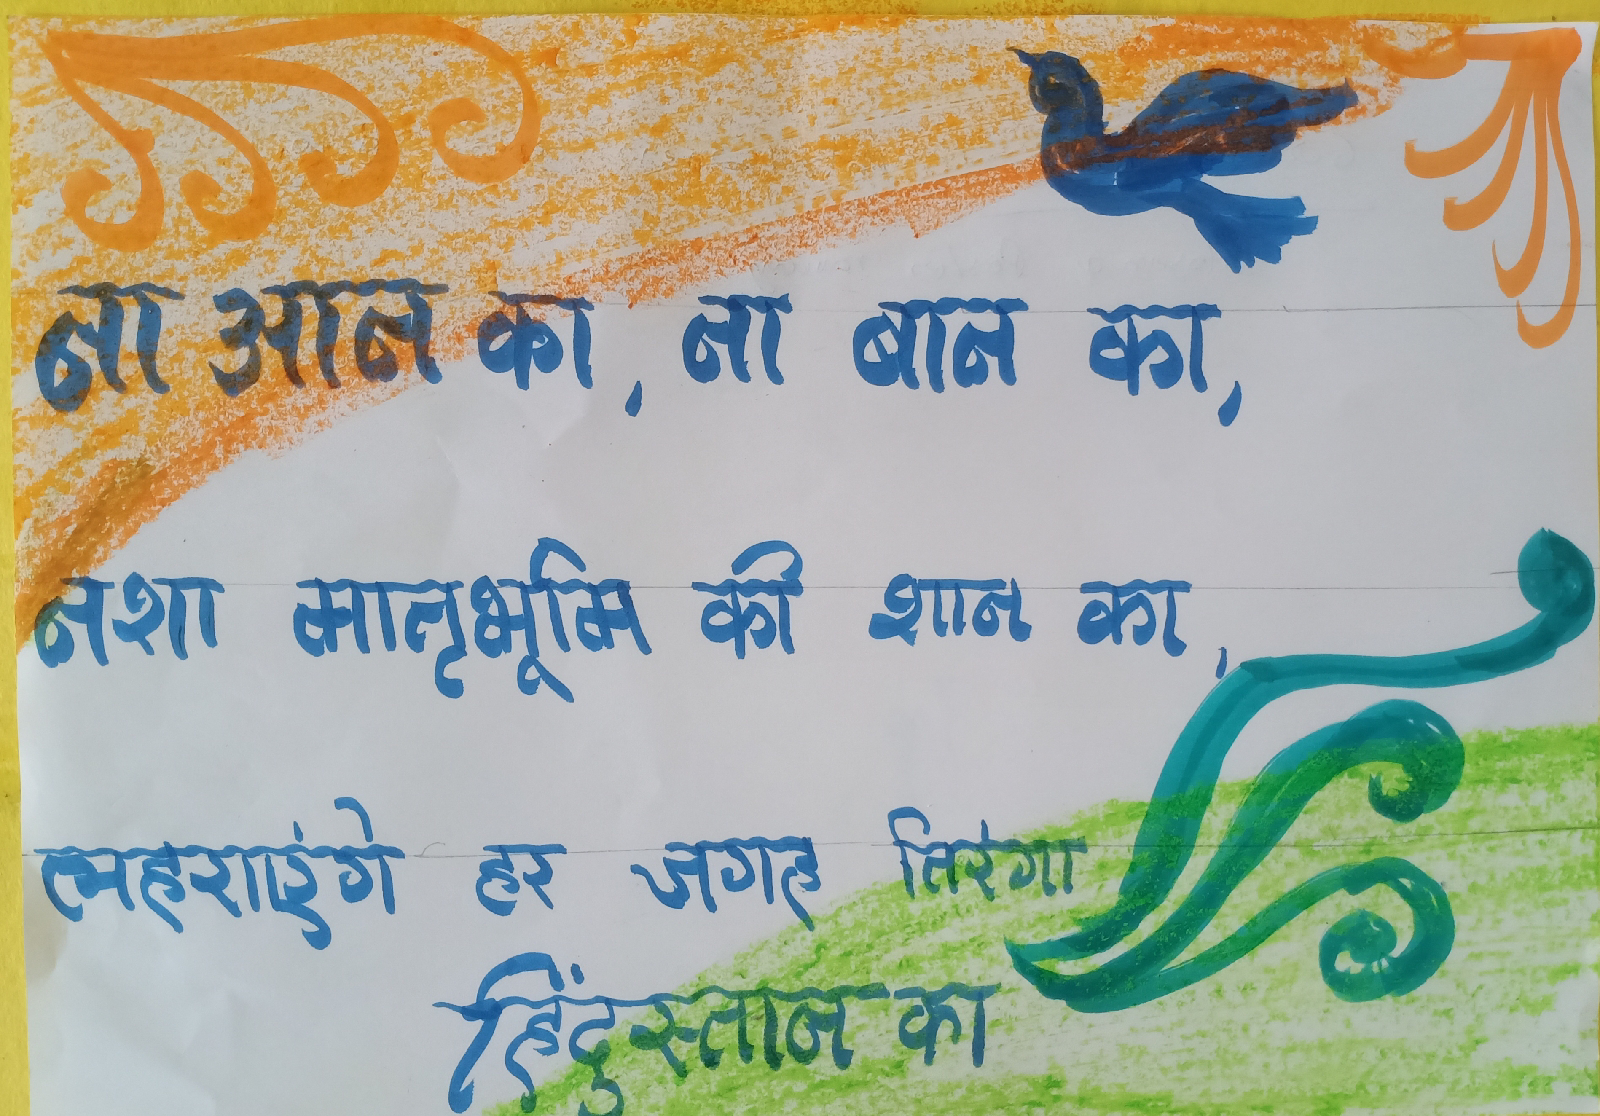 ना आन का, ना बान का,
नशा मातृभूमि की शान का,
लहराएंगे हर जगह तिरंगा
हिंदुस्तान का